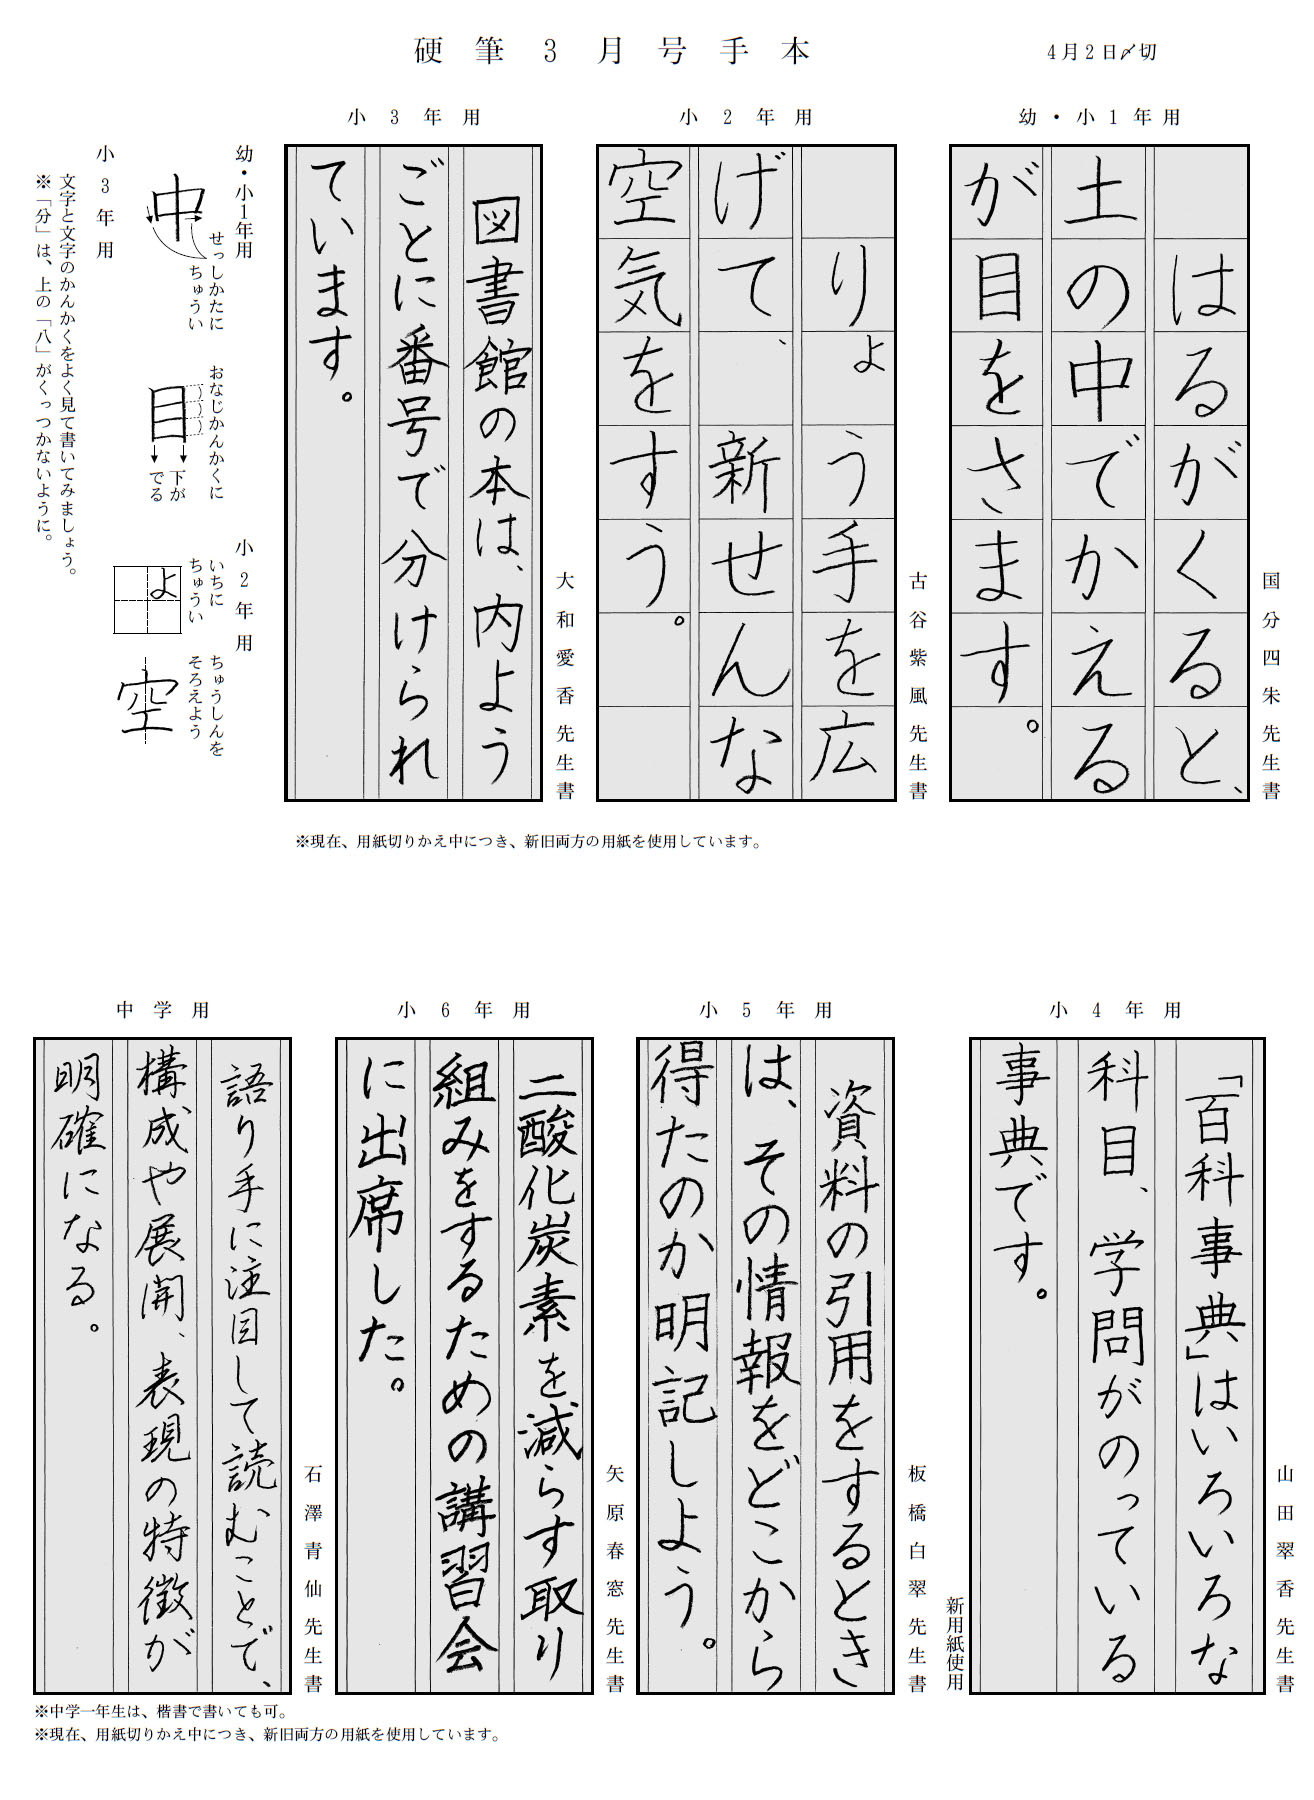 硬筆3月号手本
4月2日〆切
幼・小1年用
はるがくると、
土の中でかえる
が目をさます。
国分四朱先生書
小2年用
りょう手を広
げて、新せんな
空気をすう。
古谷紫風先生書
小3年用
図書館の本は、内よう
ごとに番号で分けられ
ています。
大和愛香先生書
※現在、用紙切りかえ中につき、新旧両方の用紙を使用しています。
幼・小1年用
中
せっしかたに
ちゅうい
目
おなじかんかくに
下が
でる
小2年用
よ
いちに
ちゅうい
空
ちゅうしんを
そろえよう
小3年用
文字と文字のかんかくをよく見て書いてみましょう。
※「分」は、上の「八」がくっつかないように。
小4年用
「百科事典」はいろいろな
科目、学問がのっている
事典です。
山田翠香先生書
新用紙使用
小5年用
資料の引用をするとき
は、その情報をどこから
得たのか明記しよう。
板橋白翠先生書
小6年用
二酸化炭素を減らす取り
組みをするための講習会
に出席した。
矢原春窓先生書
中学用
語り手に注目して読むことで、
構成や展開、表現の特徴が
明確になる。
石澤青仙先生書
※中学一年生は、楷書で書いても可。
※現在、用紙切りかえ中につき、新旧両方の用紙を使用しています。